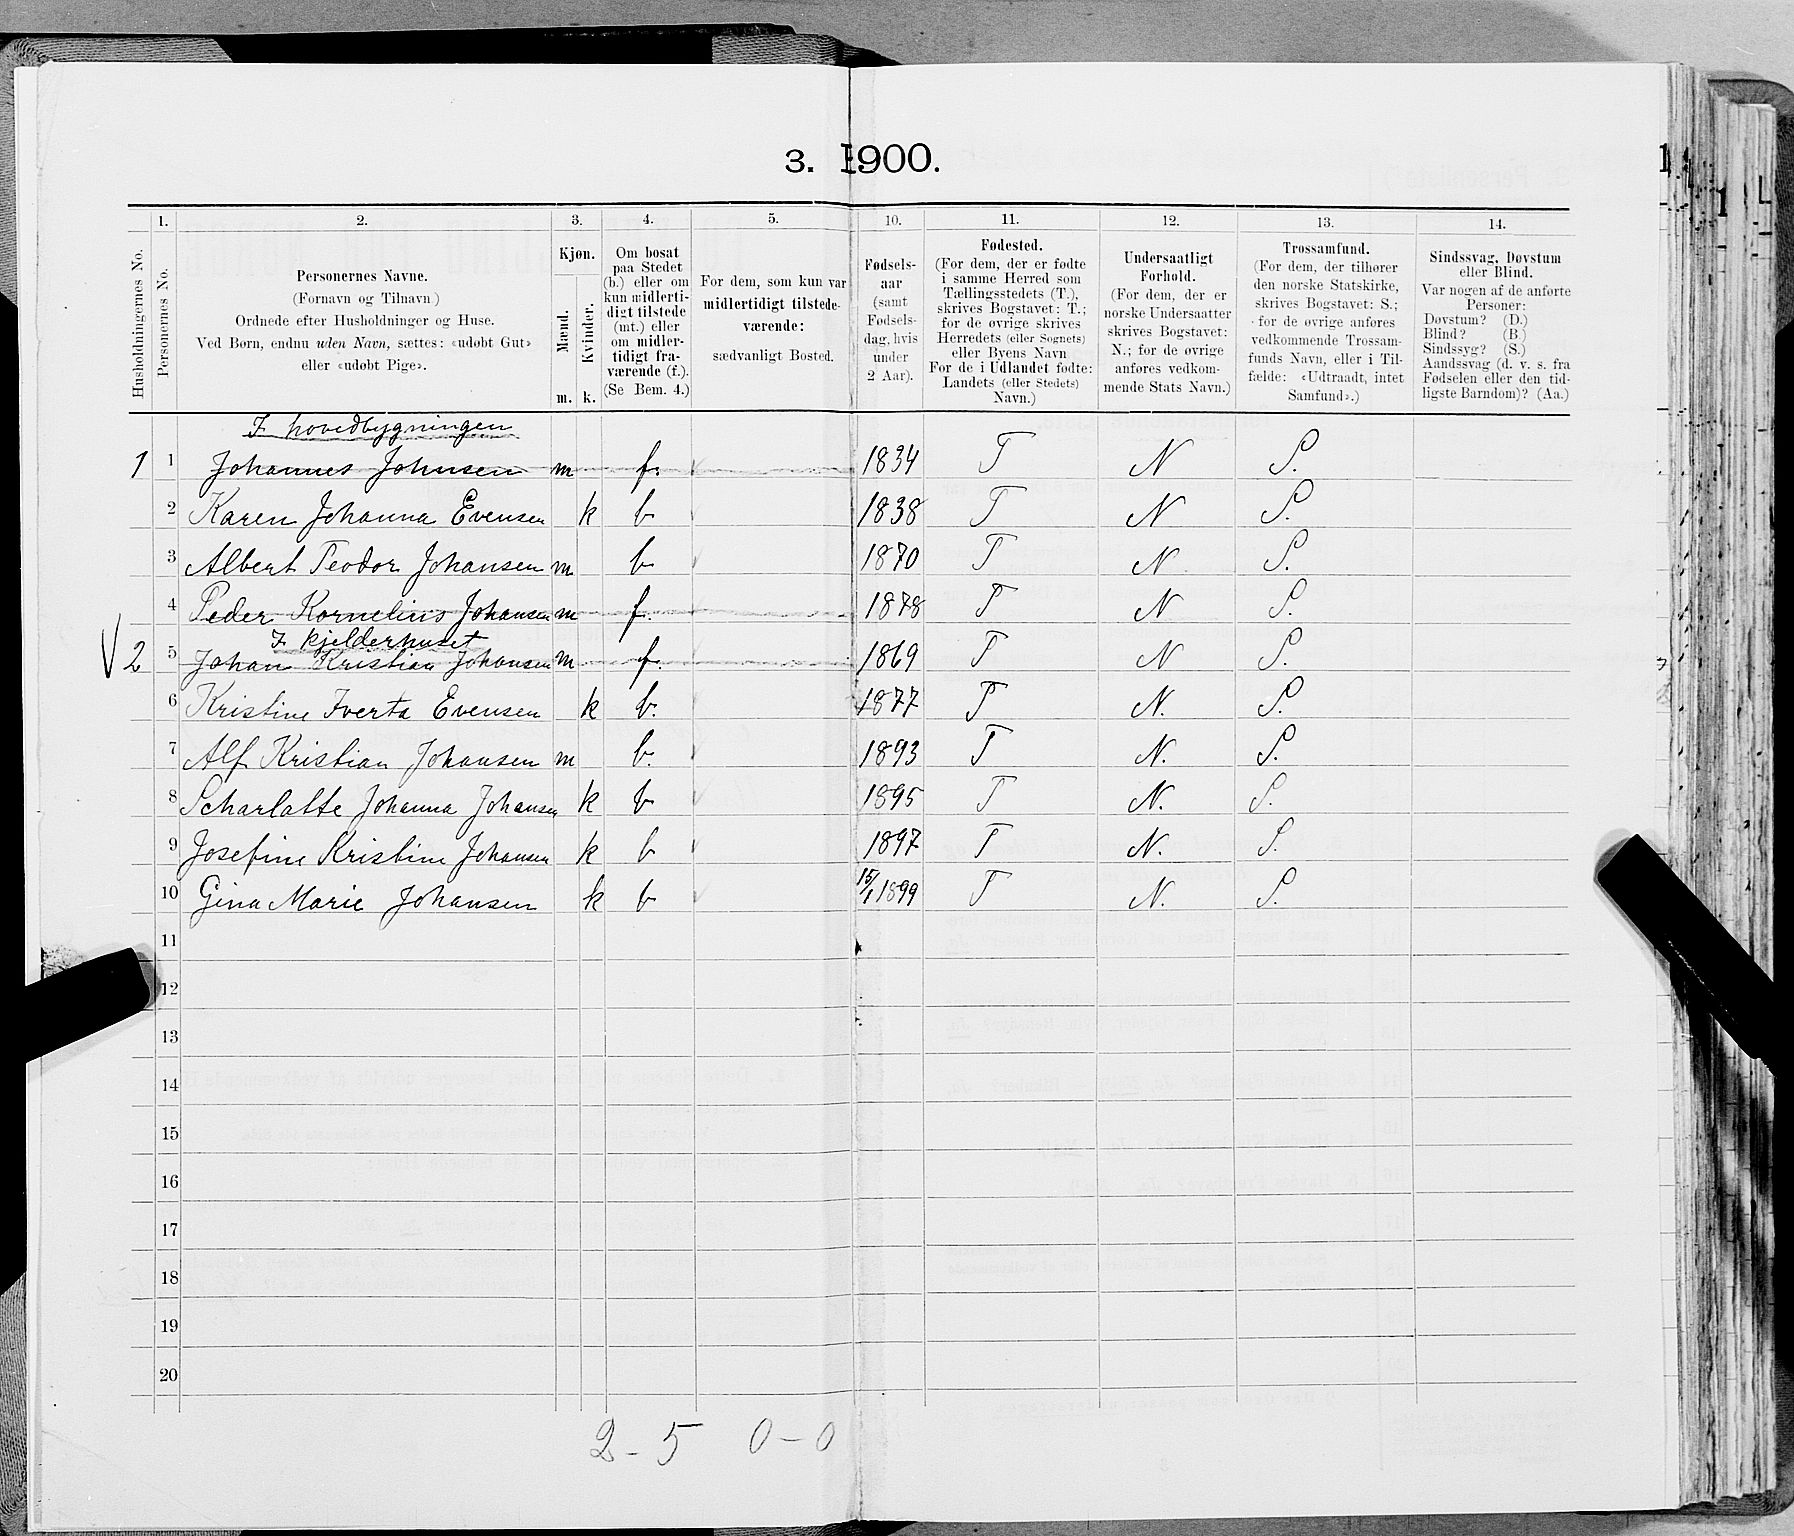 3. 1900.
1. 2. 3. 4. 5. 10. 11. 12. 13. 14.
Husholdningernes No.
Personernes No.
Personernes Navne.
(Fornavn og Tilnavn.)
Ordnede efter Husholdninger og Huse.
Ved Børn, endnu uden Navn, sættes: «udøbt Gut»
eller «udøbt Pige».
Kjøn.
Mænd.
Kvinder.
m. k.
Om bosat
paa Stedet
(b.) eller om
kun midlerti-
digt tilstede
(mt.) eller
om midler-
tidigt fra-
værende (f.).
(Se Bem. 4.)
For dem, som kun var
midlertidigt tilstede-
værende:
sædvanligt Bosted.
Fødsels-
aar
(samt
Fødsels-
dag, hvis
under
2 Aar).
Fødested.
(For dem, der er fødte
i samme Herred som
Tællingsstedets (T.),
skrives Bogstavet: T.;
for de øvrige skrives
Herredets (eller Sognets)
eller Byens Navn
For de i Udlandet fødte:
Landets (eller Stedets)
Navn.)
Undersaatligt
Forhold.
(For dem, der er
norske Undersaatter
skrives Bogstavet:
N.; for de øvrige
anføres vedkom-
mende Stats Navn.)
Trossamfund.
(For dem, der tilhører
den norske Statskirke,
skrives Bogstavet: S.;
for de øvrige anføres
vedkommende Trossam-
funds Navn, eller i Til-
fælde: «Udtraadt, intet
Samfund».)
Sindssvag, Døvstum
eller Blind.
Var nogen af de anførte
Personer:
Døvstum? (D.)
Blind? (B.)
Sindssyg? (S.)
Aandssvag (d. v. s. fra
Fødselen eller den tid-
ligste Barndom)? (Aa.)
I hovedbygningen
1 1 Johannes Johnsen m f. 1834 T N S.
2 Karen Johanna Evensen k b 1838 T N S.
3 Albert Teodor Johansen m b. 1870 T N. S.
4 Peder Kornelius Johansen m f. 1878 T N S.
I kjelderhuset
V 2 5 Johan Kristian Johansen m f. 1869 T N S.
6 Kristine Iverta Evensen k b. 1877 T N. S.
7 Alf Kristian Johansen m b. 1893 T N. S.
8 Scharlatte Johanna Johansen k b 1895 T N. S.
9 Josefine Kristine Johansen k b 1897 T N. S.
10 Gina Marie Johansen k b 15/1 1899 T N. S.
11
12
13
14
15
16
17
18
19
20
2 - 5 0 - 0